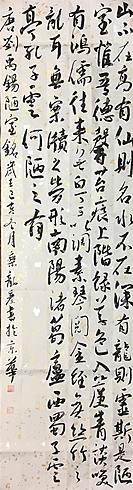 山不在高有仙則名水不在深有龍則靈斯是陋
室惟吾德馨苔痕上階綠草色入簾青談笑
有鴻儒往來無白丁可以調素琴閱金經無絲竹之
亂耳無案牘之勞形南陽諸葛廬西蜀子雲
亭孔子云何陋之有
唐劉禹錫陋室銘 己亥冬月 書於京華